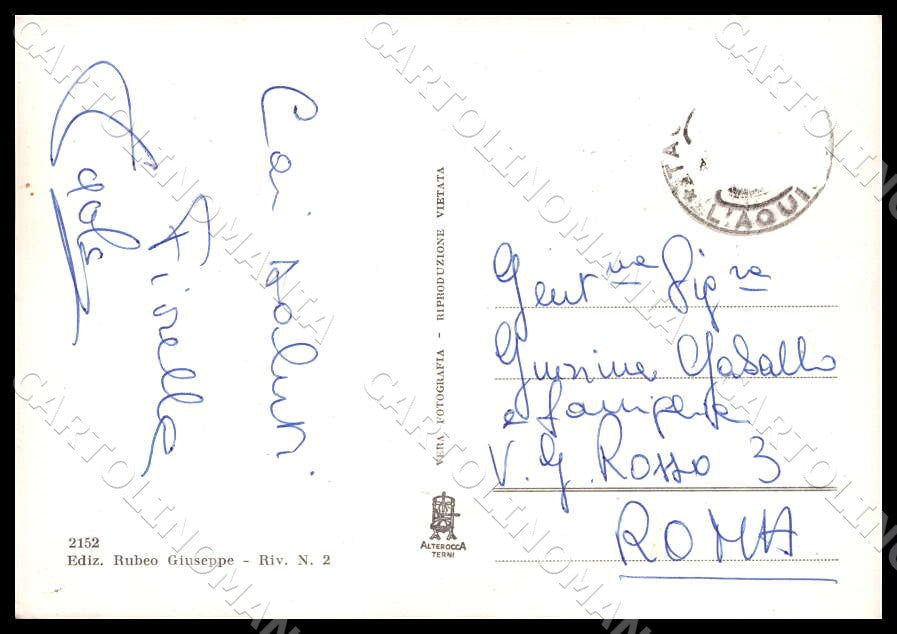 Cari saluti
Fiorella
Carla
2152
Ediz. Rubeo Giuseppe - Riv. N. 2
VERA FOTOGRAFIA - RIPRODUZIONE VIETATA
ALTEROCCA
TERNI
L'AQUI
Gent.ma Sig.ra
e famiglia
V. G. Rosso 3
ROMA
CARTOLINOMANIA